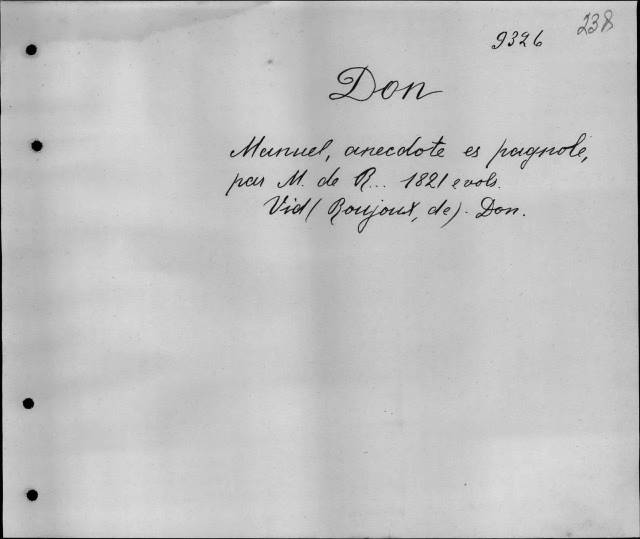 238
9326
Don
Manuel, anecdote es pagnole,
par M. de R... 1821 2 vols.
Vid (Roujoux, de). Don.